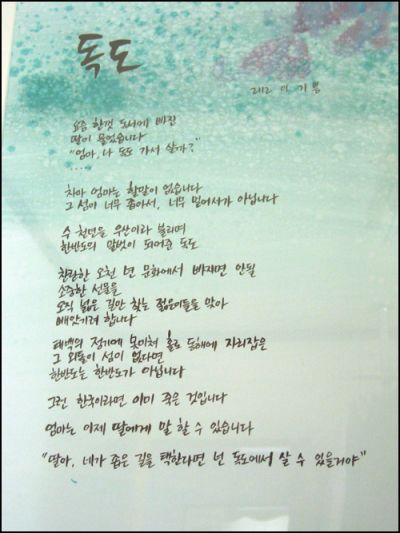 독도
요즘 한껏 도서에 빠진
딸이 물었습니다
"엄마, 나 독도 가서 살까?"
....
차마 엄마는 할말이 없습니다
그 섬이 너무 좁아서, 너무 멀어서가 아닙니다
수 천년을 우산이라 불리며
한반도의 말벗이 되어준 독도
찬란한 오천 년 문화에서 빠지면 안될
소중한 선물을
오직 넓은 길만 찾는 젊은이들을 맞아
빼앗기려 합니다
태백의 정기에 못미쳐 홀로 동해에 자리잡은
그 외톨이 섬이 없다면
한반도는 한반도가 아닙니다
그런 한국이라면 이미 죽은 것입니다
엄마는 이제 딸에게 말 할 수 있습니다
"딸아, 네가 좁은 길을 택한다면 넌 독도에서 살 수 있을거야"